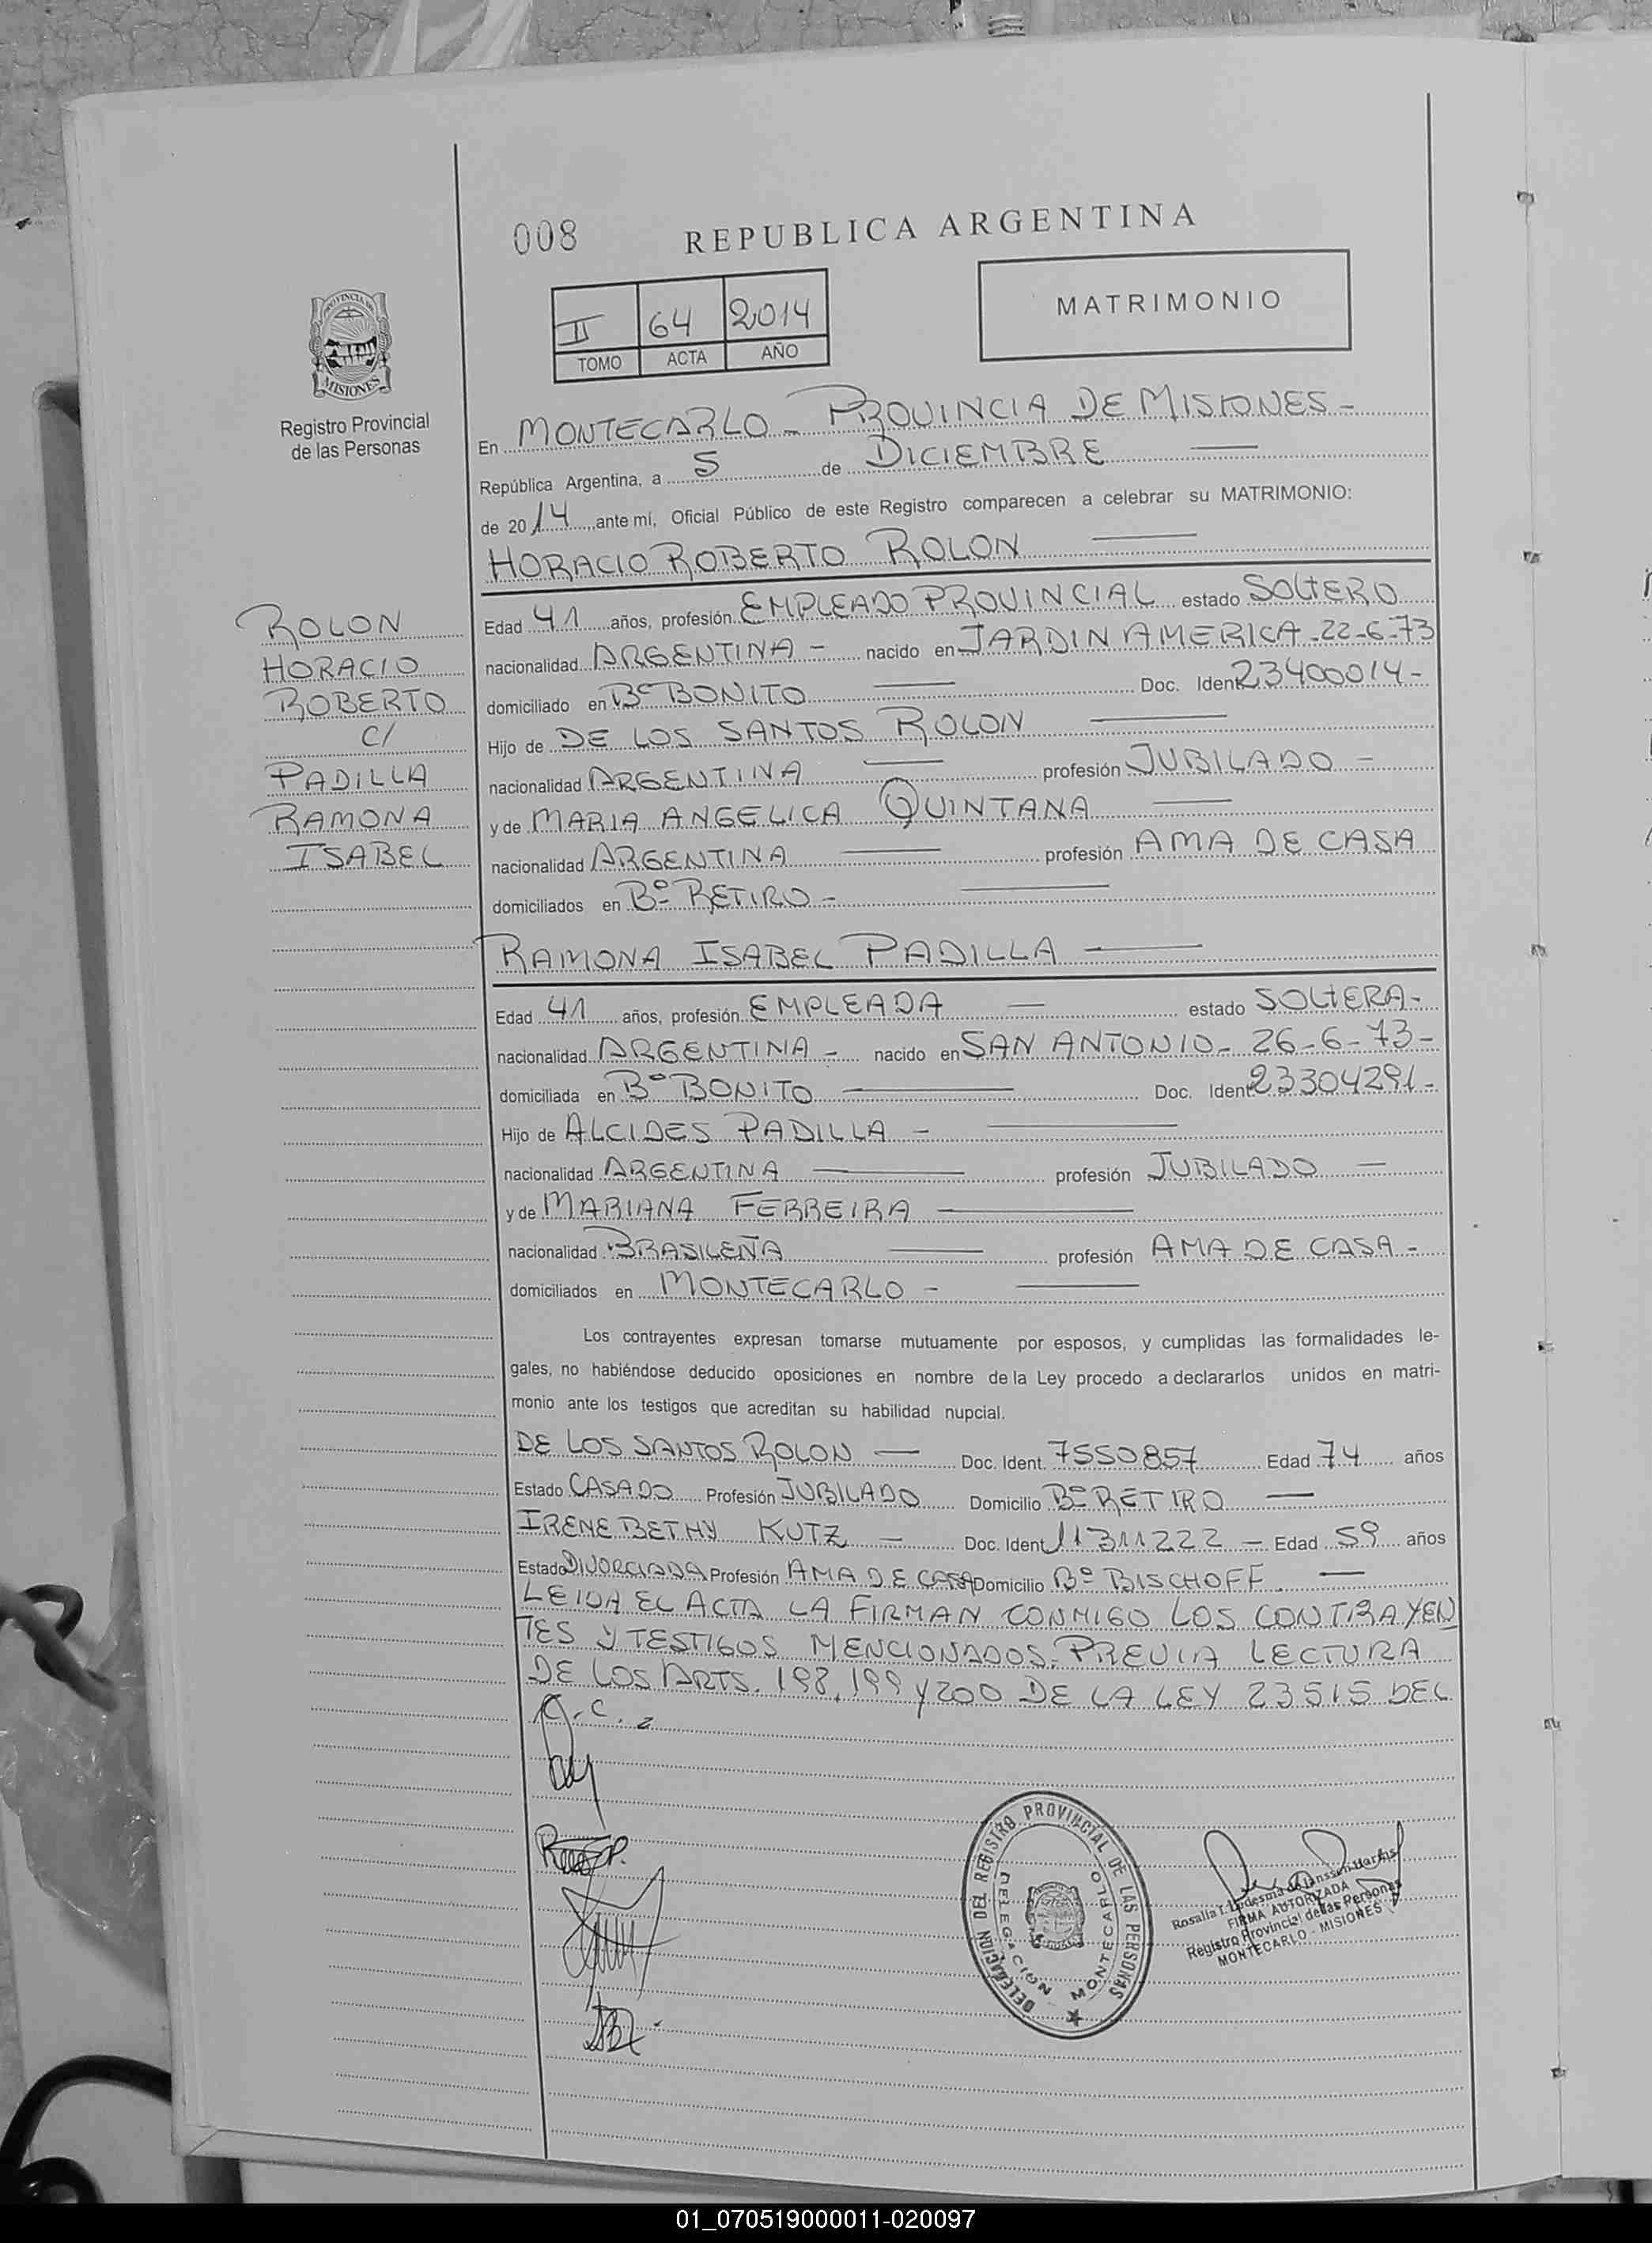 008 REPUBLICA ARGENTINA
PROVINCIA DE
MISIONES
Registro Provincial
de las Personas
II 64 2014
TOMO ACTA AÑO
MATRIMONIO
En MONTECARLO - PROVINCIA DE MISIONES -
República Argentina, a 5 de DICIEMBRE
de 2014 ante mí, Oficial Público de este Registro comparecen a celebrar su MATRIMONIO:
HORACIO ROBERTO ROLON
ROLON
HORACIO
ROBERTO
C/
PADILLA
RAMONA
ISABEL
Edad 41 años, profesión EMPLEADO PROVINCIAL estado SOLTERO
nacionalidad ARGENTINA - nacido en JARDIN AMERICA - 22-6-73
domiciliado en Bº BONITO Doc. Ident. 23400014 -
Hijo de DE LOS SANTOS ROLON
nacionalidad ARGENTINA profesión JUBILADO -
y de MARIA ANGELICA QUINTANA
nacionalidad ARGENTINA profesión AMA DE CASA
domiciliados en Bº RETIRO -
RAMONA ISABEL PADILLA
Edad 41 años, profesión EMPLEADA estado SOLTERA -
nacionalidad ARGENTINA - nacido en SAN ANTONIO - 26-6-73 -
domiciliada en Bº BONITO Doc. Ident. 23304291 -
Hijo de ALCIDES PADILLA -
nacionalidad ARGENTINA profesión JUBILADO -
y de MARIANA FERREIRA
nacionalidad BRASILEÑA profesión AMA DE CASA -
domiciliados en MONTECARLO -
Los contrayentes expresan tomarse mutuamente por esposos, y cumplidas las formalidades le-
gales, no habiéndose deducido oposiciones en nombre de la Ley procedo a declararlos unidos en matri-
monio ante los testigos que acreditan su habilidad nupcial.
DE LOS SANTOS ROLON Doc. Ident. 7550857 Edad 74 años
Estado CASADO Profesión JUBILADO Domicilio Bº RETIRO
IRENE BETHY KUTZ - Doc. Ident. 11311222 - Edad 59 años
Estado DIVORCIADA Profesión AMA DE CASA Domicilio Bº BISCHOFF.
LEIDA EL ACTA LA FIRMAN CONMIGO LOS CONTRAYEN
TES Y TESTIGOS MENCIONADOS. PREVIA LECTURA
DE LOS ARTS. 198, 199 Y 200 DE LA LEY 23515 DEL
C.
DELEGACION DEL REGISTRO PROVINCIAL DE LAS PERSONAS
DELEGACION MONTECARLO
Rosalia T. Ledesma de
FIRMA AUTORIZADA
Registro Provincial de las Personas
MONTECARLO - MISIONES
01_070519000011-020097